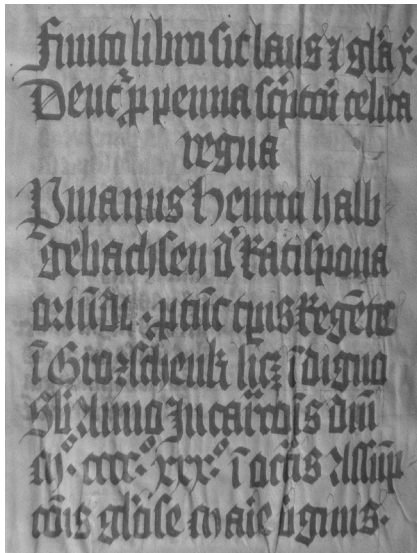 Finito libro sit laus ⁊ gl̄a x̄
Dent̄ ꝓ penna sc̄ptori celica
regna
P manus Heinrici halb
gebachsen d' Ratispona
oriūdi · ꝑtūc tꝑis Regēte
ī Grozschenk licꝫ īdigno
Anno Incarācōīs dn̄i
Mº · ccccº · xxxº ī octīs Assūp
cōīs gl̄ose Marie v̄ginis ·